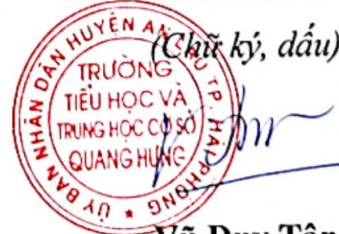 (Chữ ký, dấu)
ỦY BAN NHÂN DÂN HUYỆN AN TP. HẢI PHÒNG
TRƯỜNG
TIỂU HỌC VÀ
TRUNG HỌC CƠ SỞ
QUANG HƯNG
Vũ Duy Tân